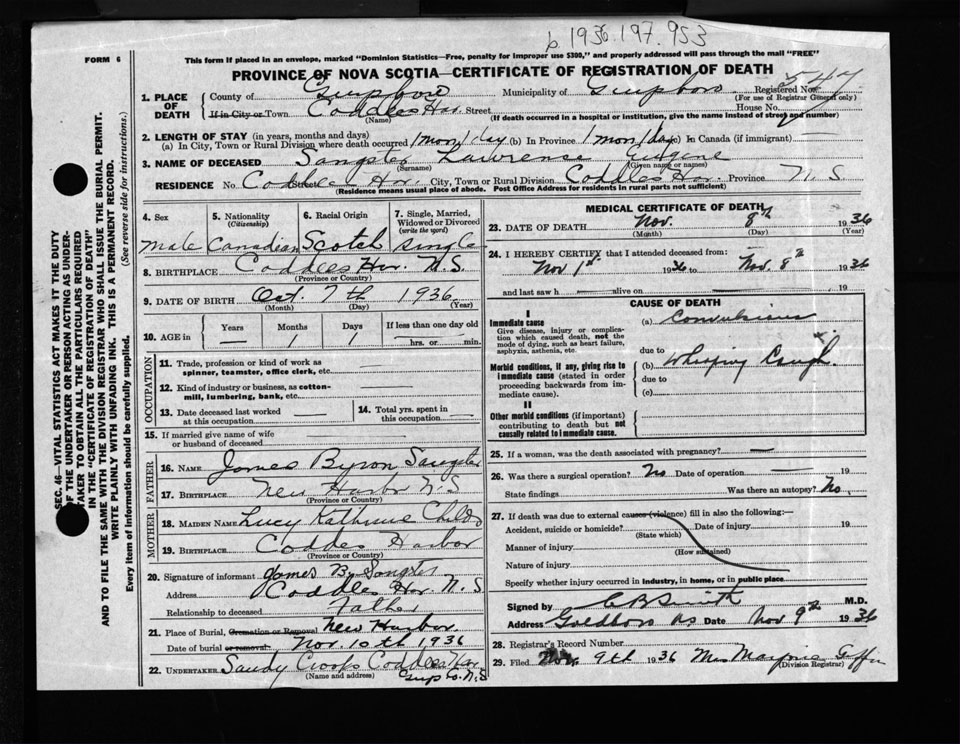 b. 1936. 197. 953
FORM 6
This form if placed in an envelope, marked "Dominion Statistics—Free, penalty for improper use $300," and properly addressed will pass through the mail "FREE"
PROVINCE OF NOVA SCOTIA—CERTIFICATE OF REGISTRATION OF DEATH
1. PLACE OF DEATH County of Guysboro Municipality of Guysboro. Registered No. 547
(For use of Registrar General only)
If in City or Town Coddles Har. Street House No.
(Name) (If death occurred in a hospital or institution, give the name instead of street and number
2. LENGTH OF STAY (in years, months and days)
(a) In City, Town or Rural Division where death occurred 1 mon 1 day (b) In Province 1 mon 1 day (c) In Canada (if immigrant)
3. NAME OF DECEASED Sangster Lawrence Eugene
(Surname) (Given name or names)
RESIDENCE No. Coddles Har. Street City, Town or Rural Division Coddles Har. Province N. S.
(Residence means usual place of abode. Post Office Address for residents in rural parts not sufficient)
4. Sex 5. Nationality (Citizenship) 6. Racial Origin 7. Single, Married, Widowed or Divorced (write the word)
male Canadian Scotch single
8. BIRTHPLACE Coddles Har. N.S.
(Province or Country)
9. DATE OF BIRTH Oct. 7th 1936
(Month) (Day) (Year)
10. AGE in Years Months Days If less than one day old
— 1 1 hrs. or min.
OCCUPATION
11. Trade, profession or kind of work as spinner, teamster, office clerk, etc.
12. Kind of industry or business, as cotton-mill, lumbering, bank, etc.
13. Date deceased last worked at this occupation
14. Total yrs. spent in this occupation
15. If married give name of wife or husband of deceased
FATHER
16. NAME James Byron Sangster
17. BIRTHPLACE New Harbor N.S
(Province or Country)
MOTHER
18. MAIDEN NAME Lucy Kathrine Childs
19. BIRTHPLACE Coddes Harbor
(Province or Country)
20. Signature of informant James By Sangster
Address Coddles Har. N. S
Relationship to deceased Father
21. Place of Burial, Cremation or Removal New Harbor
Date of burial or removal: Nov. 10th, 1936
22. UNDERTAKER Sandy Croops Coddles Har.
(Name and address) Guys Co. N.S
MEDICAL CERTIFICATE OF DEATH
23. DATE OF DEATH Nov. 8th 1936
(Month) (Day) (Year)
24. I HEREBY CERTIFY that I attended deceased from:
Nov 1st 1936 to Nov. 8th 1936
and last saw h alive on 19
CAUSE OF DEATH
I
Immediate cause
Give disease, injury or complication which caused death, not the mode of dying, such as heart failure, asphyxia, asthenia, etc.
(a) Convulsions
due to
Morbid conditions, if any, giving rise to immediate cause (stated in order proceeding backwards from immediate cause).
(b) Whooping Cough.
due to
(c)
II
Other morbid conditions (if important) contributing to death but not causally related to immediate cause.
25. If a woman, was the death associated with pregnancy?
26. Was there a surgical operation? No Date of operation 19
State findings Was there an autopsy? No.
27. If death was due to external causes (violence) fill in also the following:—
Accident, suicide or homicide? Date of injury 19
(State which)
Manner of injury
(How sustained)
Nature of injury
Specify whether injury occurred in industry, in home, or in public place
Signed by C B Smith M.D.
Address Goldboro NS Date Nov 9th 1936
28. Registrar's Record Number
29. Filed Nov. 9th 1936 Mrs Marjorie Giffin
(Division Registrar)
SEC. 46—VITAL STATISTICS ACT MAKES IT THE DUTY
OF THE UNDERTAKER OR PERSON ACTING AS UNDER-
TAKER TO OBTAIN ALL THE PARTICULARS REQUIRED
IN THE "CERTIFICATE OF REGISTRATION OF DEATH"
AND TO FILE THE SAME WITH THE DIVISION REGISTRAR WHO SHALL ISSUE THE BURIAL PERMIT.
WRITE PLAINLY WITH UNFADING INK. THIS IS A PERMANENT RECORD.
Every item of information should be carefully supplied. (See reverse side for instructions.)